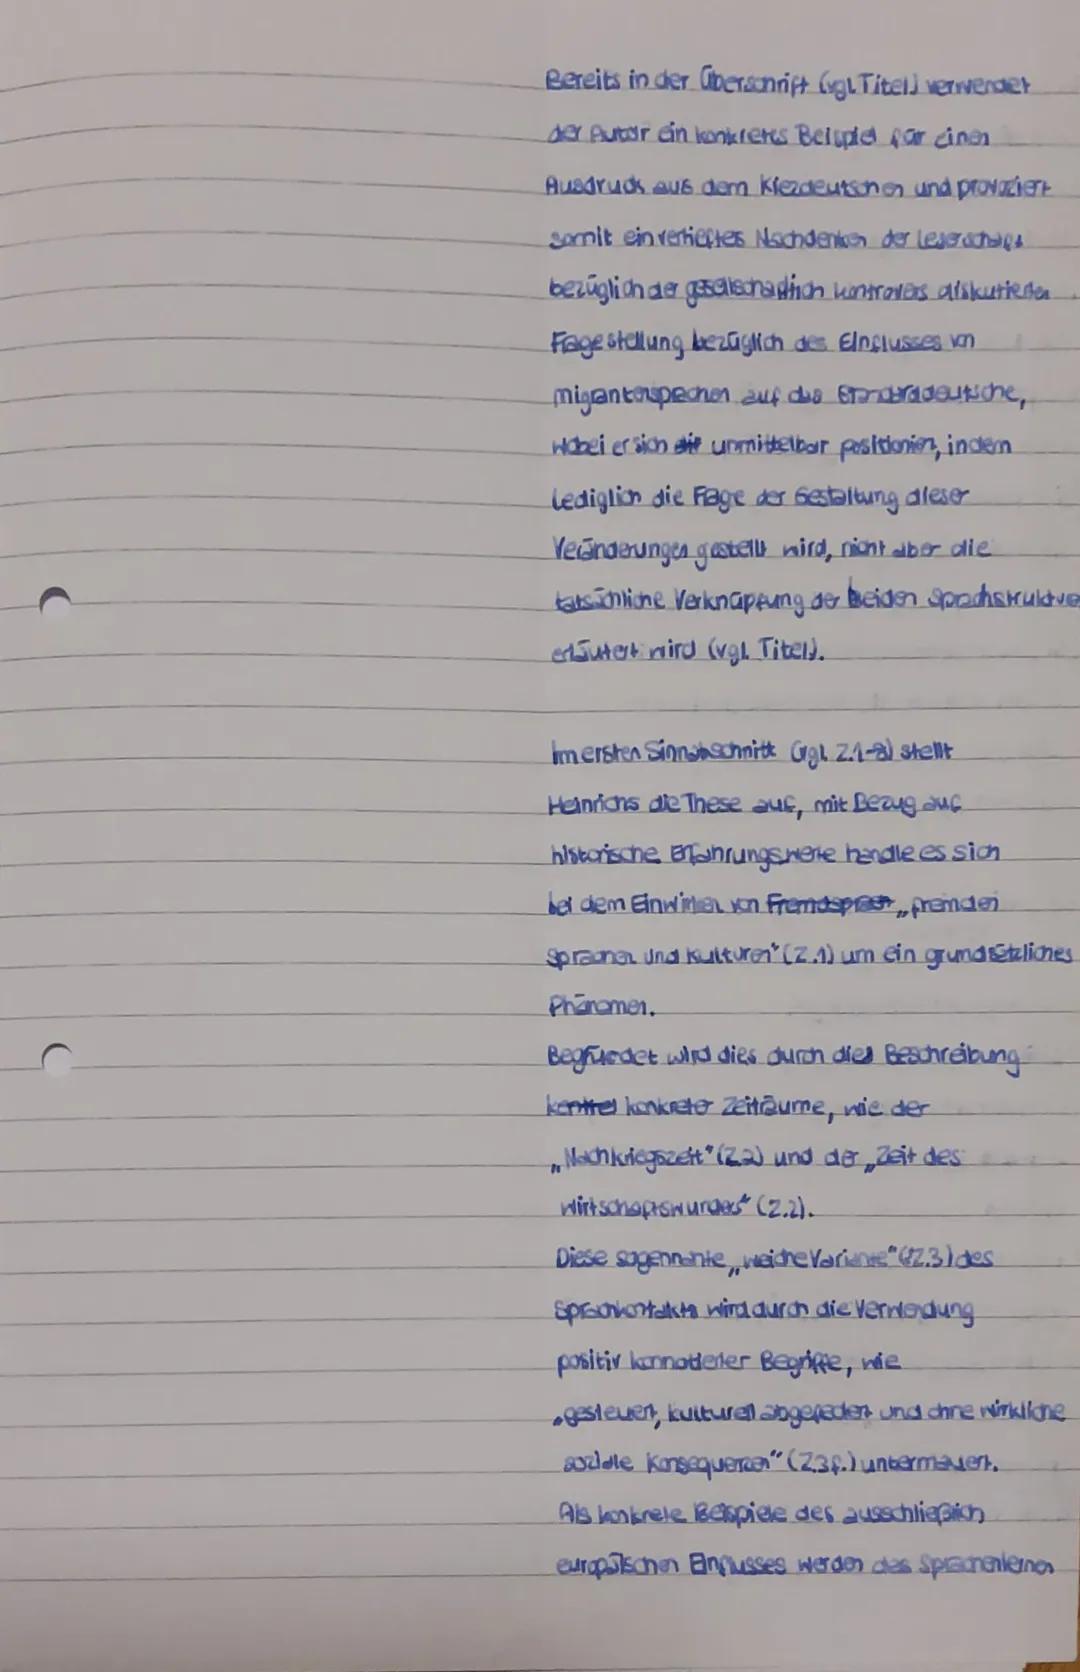 Bereits in der Überschrift (vgl. Titel) verwendet
der Autor ein konkretes Beispiel für einen
Ausdruck aus dem Kiezdeutschen und provoziert
somit ein vertieftes Nachdenken der Leserschaft
bezüglich der gesellschaftlich kontrovers diskutierten
Fragestellung bezüglich des Einflusses von
migrantensprachen auf das Standarddeutsche,
wobei er sich unmittelbar positioniert, indem
lediglich die Frage der Gestaltung dieser
Veränderungen gestellt wird, nicht aber die
tatsächliche Verknüpfung der beiden Sprachstruktu
erläutert wird (vgl. Titel).
Im ersten Sinnabschnitt (vgl. Z.1-8) stellt
Heinrichs die These auf, mit Bezug auf
historische Erfahrungswerte handle es sich
bei dem Einwirken von Fremdsprach „fremden
Sprachen und Kulturen" (Z.1) um ein grundsätzliches
Phänomen.
Begründet wird dies durch die Beschreibung
konkreter Zeiträume, wie der
„Nachkriegszeit" (Z.2) und der „Zeit des
Wirtschaftswunders" (Z.2).
Diese sogennante „weiche Variante" (Z.3) des
Sprachkontakts wird durch die Verwendung
positiv konnotierter Begriffe, wie
„gesteuert, kulturell abgefedert und ohne wirkliche
soziale Konsequenzen" (Z.3f.) untermauert.
Als konkrete Beispiele des ausschließlich
europäischen Einflusses werden das Sprachenlernen